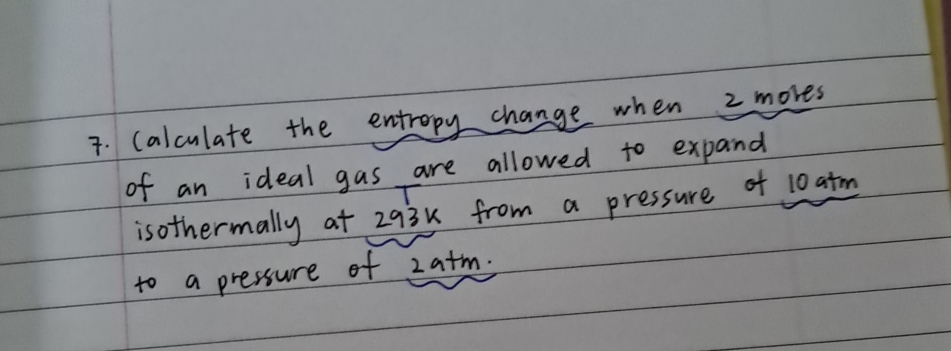 7. Calculate the entropy change when 2 moles
of an ideal gas are allowed to expand
T
isothermally at 293K from a pressure of 10 atm
to a pressure of 2 atm.